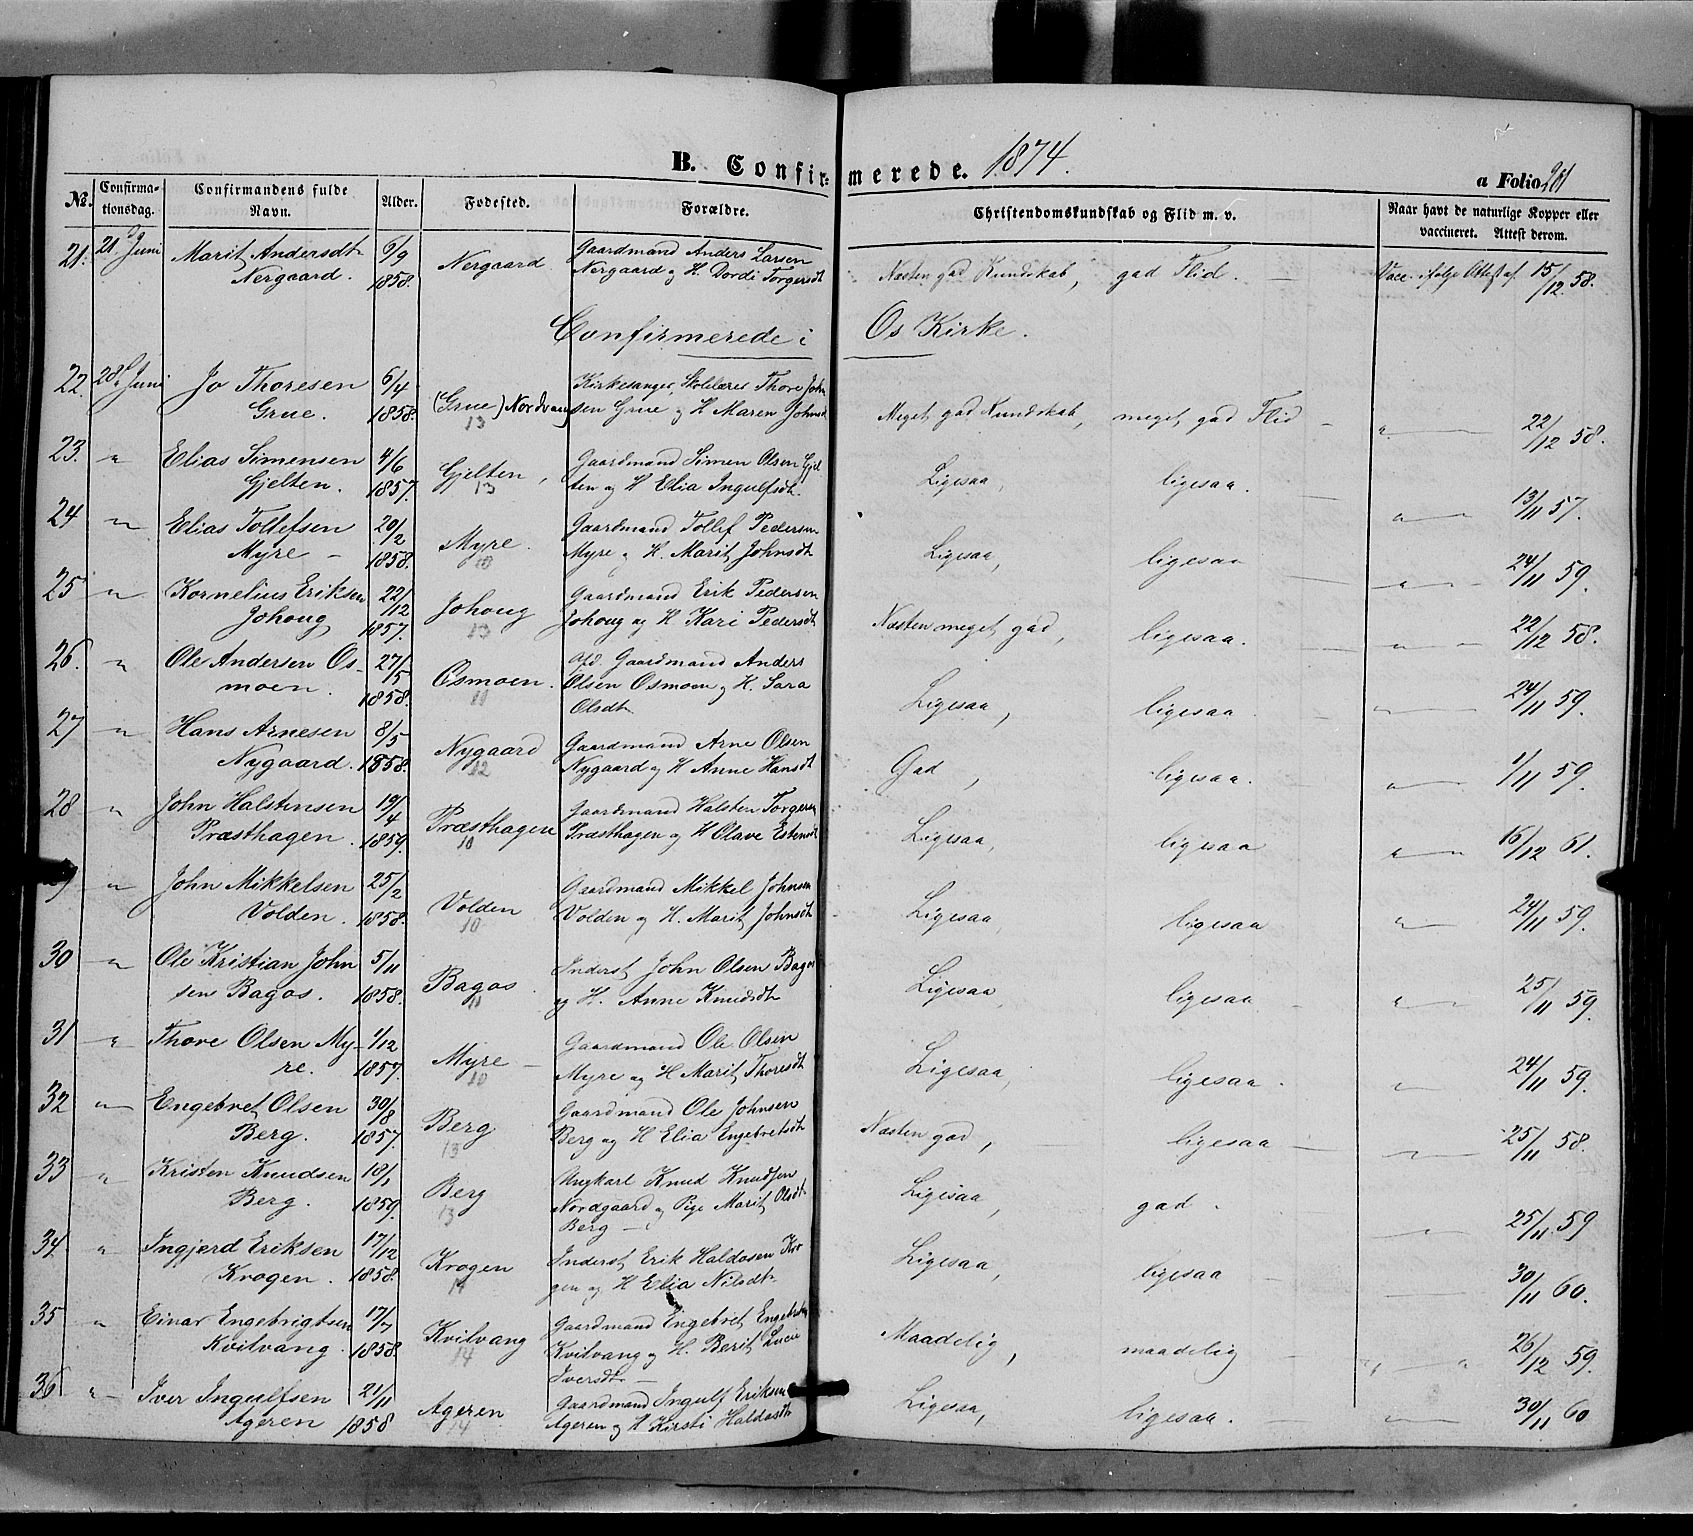 B. Confirmerede. 1874.
a Folio 201
No.
Confirmationsdag.
Confirmandens fulde Navn.
Alder.
Fødested.
Forældre.
Christendomskundskab og Flid m. v.
Naar havt de naturlige Kopper eller vaccineret. Attest derom.
21. 21 Juni Marit Andersdt 6/9 Nergaard Gaardmand Anders Larsen Næsten god Kundskab, god Flid. — Vacc. ifølge Attest af 15/12 58.
Nergaard. 1858. Nergaard og H. Dordi Torgersdt
Confirmerede i Os Kirke.
22. 28 Juni Jo Thoresen 6/4 (Grue) Nordvang Kirkesanger, Skolelærer Thore John
Grue. 1858. 13 sen Grue og H Maren Johnsdt Meget god Kundskab, meget god Flid — " 22/12 58.
23. " Elias Simensen 4/6 Gjelten, Gaardmand Simen Olsen Gjel- Ligesaa, ligesaa. —
Gjelten. 1857. 13 ten og H Elia Ingulfsdt. " 13/11 57.
24 " Elias Tollefsen 20/2 Myre. Gaardmand Tollef Pedersen Ligesaa, ligesaa
Myre — 1858. 10 Myre og H. Marit Johnsdt " 24/11 59.
25 " Kornelius Eriksen 22/12 Johoug Gaardmand Erik Pedersen Næsten meget god, ligesaa.
Johoug 1857. 13 Johoug og H Kari Pedersdt " 22/12 58.
26. " Ole Andersen Os- 27/5 Osmoen. Afd. Gaardmand Anders
moen. 1858. 11 Olsen Osmoen og H. Sara Ligesaa, ligesaa " 24/11 59.
Olsdt
27 " Hans Arnesen 8/5 Nygaard Gaardmand Arne Olsen God, ligesaa.
Nygaard. 1858. 12 Nygaard og H Anne Hansdt " 1/11 59.
28 " John Halstensen 19/4 Præsthagen Gaardmand Halsten Torgersen Ligesaa, ligesaa
Præsthagen. 1859. 10 Præsthagen og H Olave Estensdt " 16/12 61.
9 " John Mikkelsen 25/2 Volden Gaardmand Mikkel Johnsen Ligesaa, ligesaa
Volden. 1858. 10 Volden og H. Marit Johnsdt " 24/11 59.
30 " Ole Kristian John 5/11 Bagos. Inderst John Olsen Bagos Ligesaa, ligesaa —
sen Bagos. 1858. 11 og H. Anne Knudsdt " 25/11 59.
31 " Thore Olsen My- 1/12 Myre — Gaardmand Ole Olsen Ligesaa, ligesaa.
re. 1857. 10 Myre og H Marit Thoresdt " 24/11 59.
32 " Engebret Olsen 30/8 Berg Gaardmand Ole Johnsen Næsten god, ligesaa —
Berg. 1857. 13 Berg og H Elia Engebretsdt " 25/11 58.
33 " Kristen Knudsen 18/1 Berg Ungkarl Knud Knudsen Ligesaa, god.
Berg. 1859. 13 Nordgaard og Pige Marit Olsdt " 25/11 59
Berg —
34 " Ingjerd Eriksen 17/12 Krogen Inderst Erik Haldosen Kro Ligesaa, ligesaa —
Krogen. 1858. 14 gen og H Elia Nilsdt 30/11 60.
35 " Einar Engebrigtsen 17/7 Kvilvang Gaardmand Engebret Engebretsen Maadelig, maadelig —
Kvilvang. 1858. 14 Kvilvang og H. Berit Lucie " " 26/12 59.
Iversdt —
36 " Iver Ingulfsen 21/11 Ageren Gaardmand Ingulf Eriksen Ligesaa, ligesaa.
Ageren 1858 14 Ageren og H Kirsti Haldosdt " 30/11 60